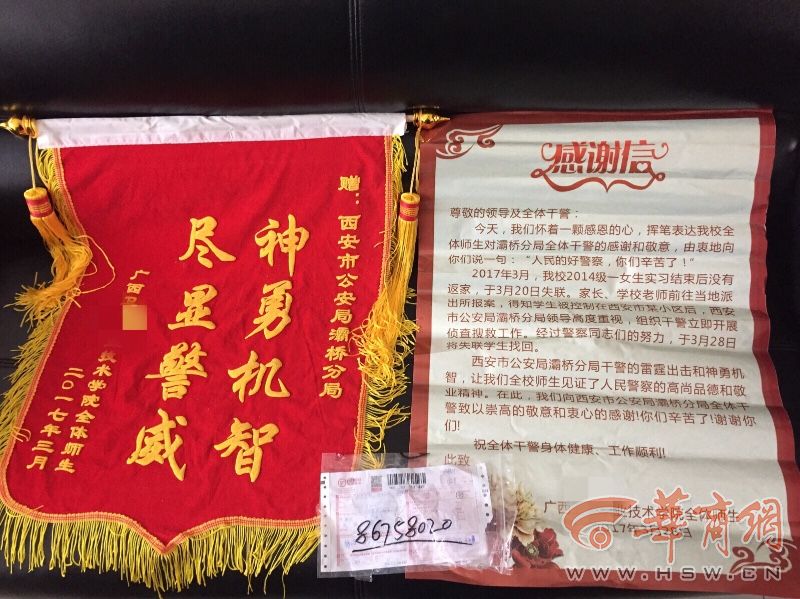 赠：西安市公安局灞桥分局
神勇机智
尽显警威
广西
技术学院全体师生
二〇一七年三月
感谢信
尊敬的领导及全体干警：
今天，我们怀着一颗感恩的心，挥笔表达我校全
体师生对灞桥分局全体干警的感谢和敬意，由衷地向
你们说一句：“人民的好警察，你们辛苦了！”
2017年3月，我校2014级一女生实习结束后没有
返家，于3月20日失联。家长、学校老师前往当地派
出所报案，得知学生被控制在西安市某小区后，西安
市公安局灞桥分局领导高度重视，组织干警立即开展
侦查搜救工作。经过警察同志们的努力，于3月28日
将失联学生找回。
西安市公安局灞桥分局干警的雷霆出击和神勇机
智，让我们全校师生见证了人民警察的高尚品德和敬
业精神。在此，我们向西安市公安局灞桥分局全体干
警致以崇高的敬意和衷心的感谢!你们辛苦了!谢谢你
们!
祝全体干警身体健康、工作顺利!
此致
广西
技术学院全体师生
86758020
華商網
WWW.HSW.CN